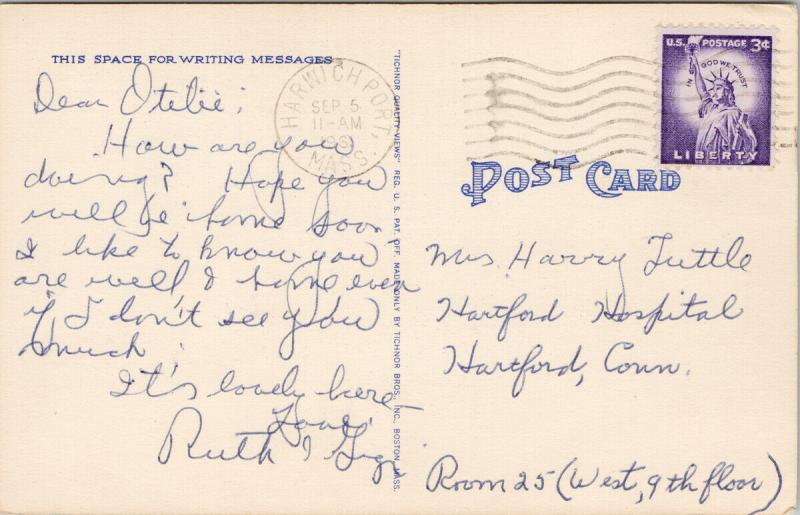 THIS SPACE FOR WRITING MESSAGES
Dear Otelie;
How are you
doing? Hope you
will be home soon,
I like to know you
are well & home even
if I don't see you
much.
It's lovely here
Love,
Ruth &
"TICHNOR QUALITY VIEWS" REG. U. S. PAT. OFF. MADE ONLY BY TICHNOR BROS., INC., BOSTON, MASS.
HARWICH PORT,
SEP 5
11-AM
MASS.
U.S. POSTAGE 3¢
IN GOD WE TRUST
LIBERTY
POST CARD
Mrs Harry Tuttle
Hartford Hospital
Hartford, Conn.
Room 25 (West, 9th floor)